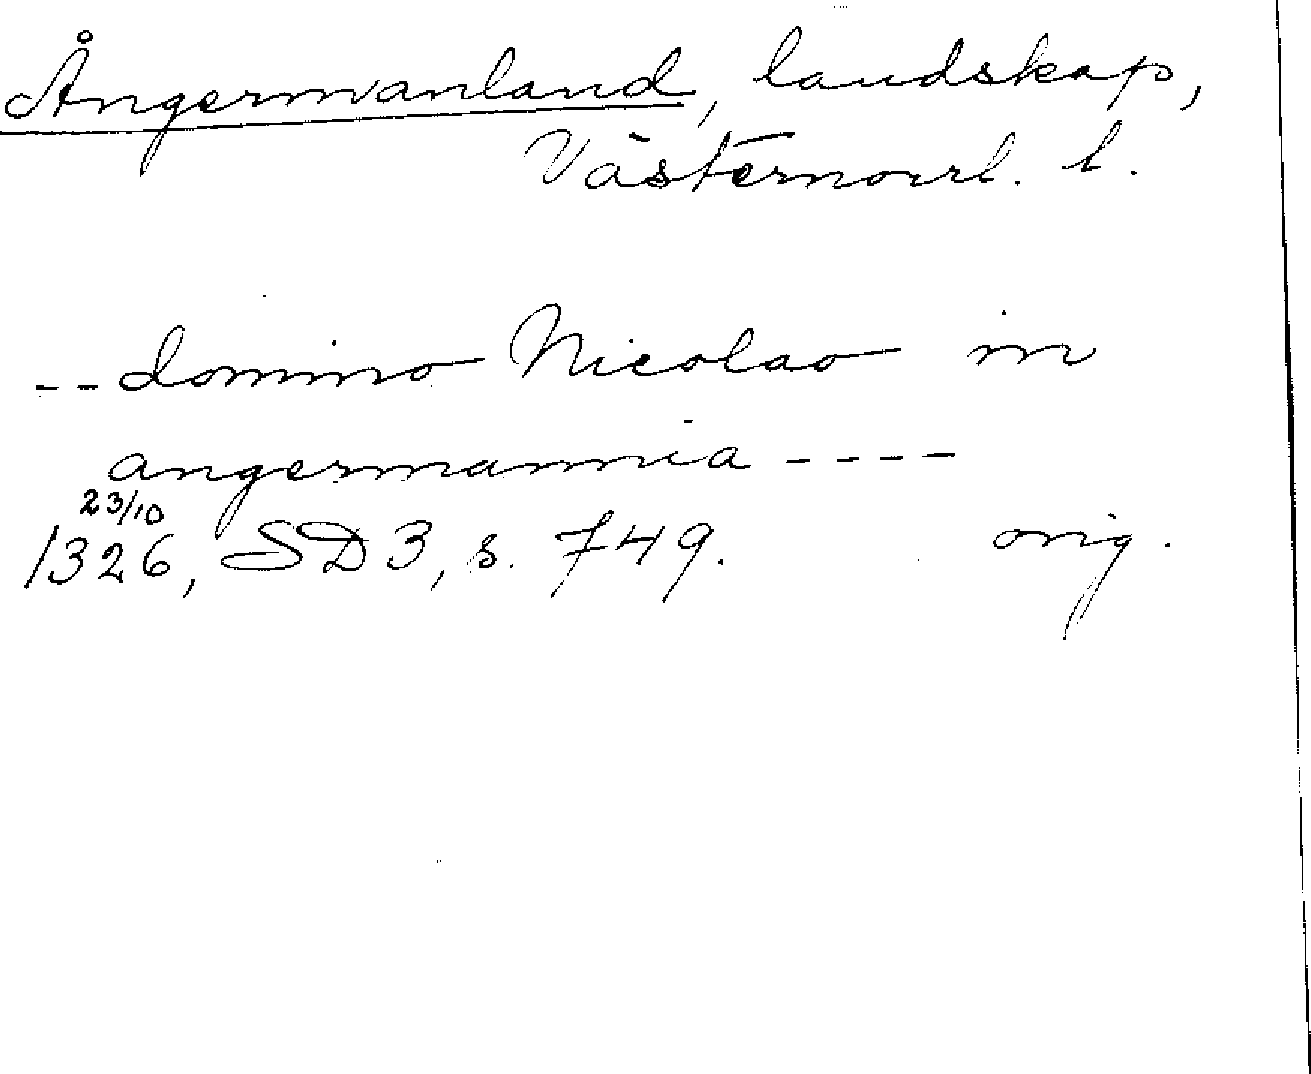 Ångermanland, landskap,
Västernorrl. l.
--domino Nicolao in
angermannia ----
23/10
1326, SD 3, s. 749. orig.